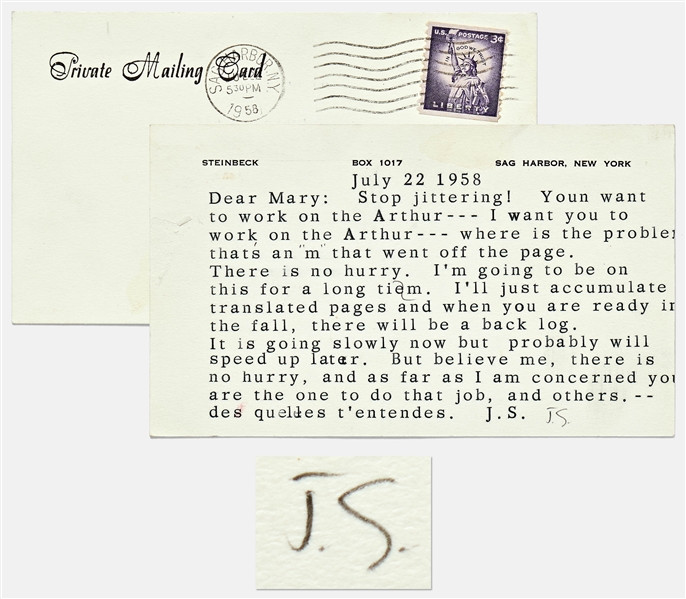 Private Mailing Card
SAG HARBOR, N.Y.
5 30 PM
1958
U.S. POSTAGE 3¢
IN GOD WE TRUST
LIBERTY
STEINBECK BOX 1017 SAG HARBOR, NEW YORK
July 22 1958
Dear Mary: Stop jittering! Youn want
to work on the Arthur--- I want you to
work on the Arthur--- where is the problem
that's an "m" that went off the page.
There is no hurry. I'm going to be on
this for a long tiem. I'll just accumulate
translated pages and when you are ready in
the fall, there will be a back log.
It is going slowly now but probably will
speed up later. But believe me, there is
no hurry, and as far as I am concerned you
are the one to do that job, and others.--
des quelles t'entendes. J.S. J.S.
J.S.